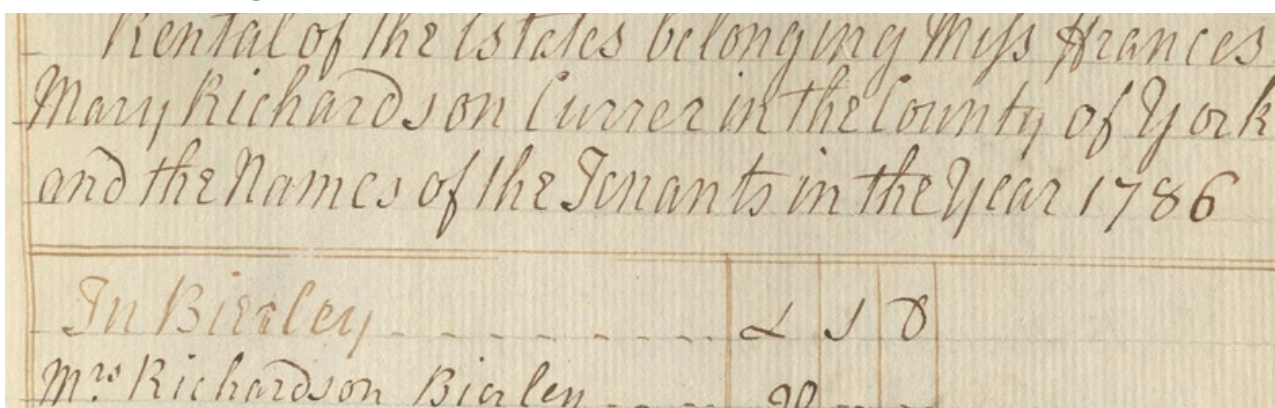 Rental of the Estates belonging Miss Frances
Mary Richardson Currer in the County of York
and the Names of the Tenants in the Year 1786
In Bierley - - - - - - - - - £ S D
Mrs. Richardson Bierley - - - - 90 - -